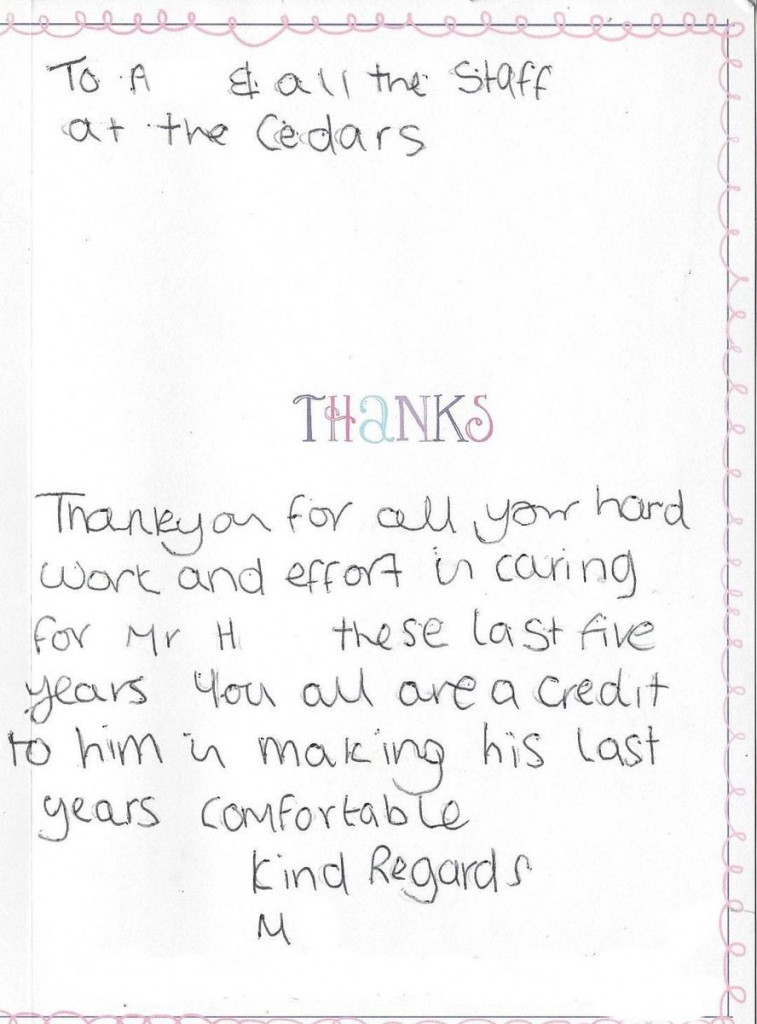 To A & all the Staff
at the Cedars
THANKS
Thankyou for all your hard
work and effort in caring
for Mr H these last five
years You all are a credit
to him in making his last
years comfortable
Kind Regards
M